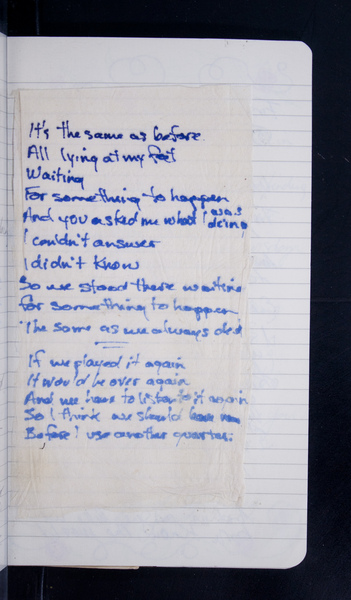 It's the same as before.
All lying at my feet
Waiting
For something to happen
And you asked me what I was doing
I couldn't answer
I didn't know
So we stood there waiting
For something to happen
The same as we always did
If we played it again
It would be over again
And we have to listen to it again
So I think we should
Before I use another quarter.